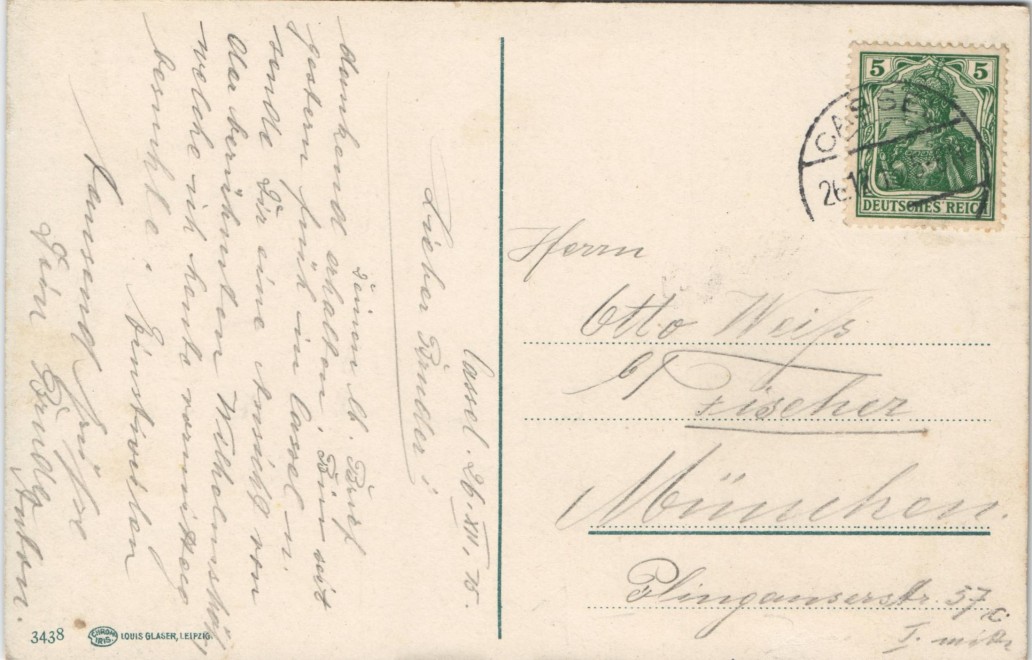 Cassel, 26. XII. 15.
Lieber Bruder!
Deinen lb. Brief
dankend erhalten. Bin seit
gestern früh in Cassel u.
sende Dir eine Ansicht von
der berühmten Wilhelmshöh,
welche ich heute vormittag
besuchte. Einstweilen
tausend Grüße
Dein Bruder
Anton.
5 5
DEUTSCHES REICH
CASSEL
26.12.
Herrn
Otto Weiß
b/ Fischer
München.
Plinganserstr. 57
I. mitte
3438 CHROM IRIS. LOUIS GLASER, LEIPZIG.